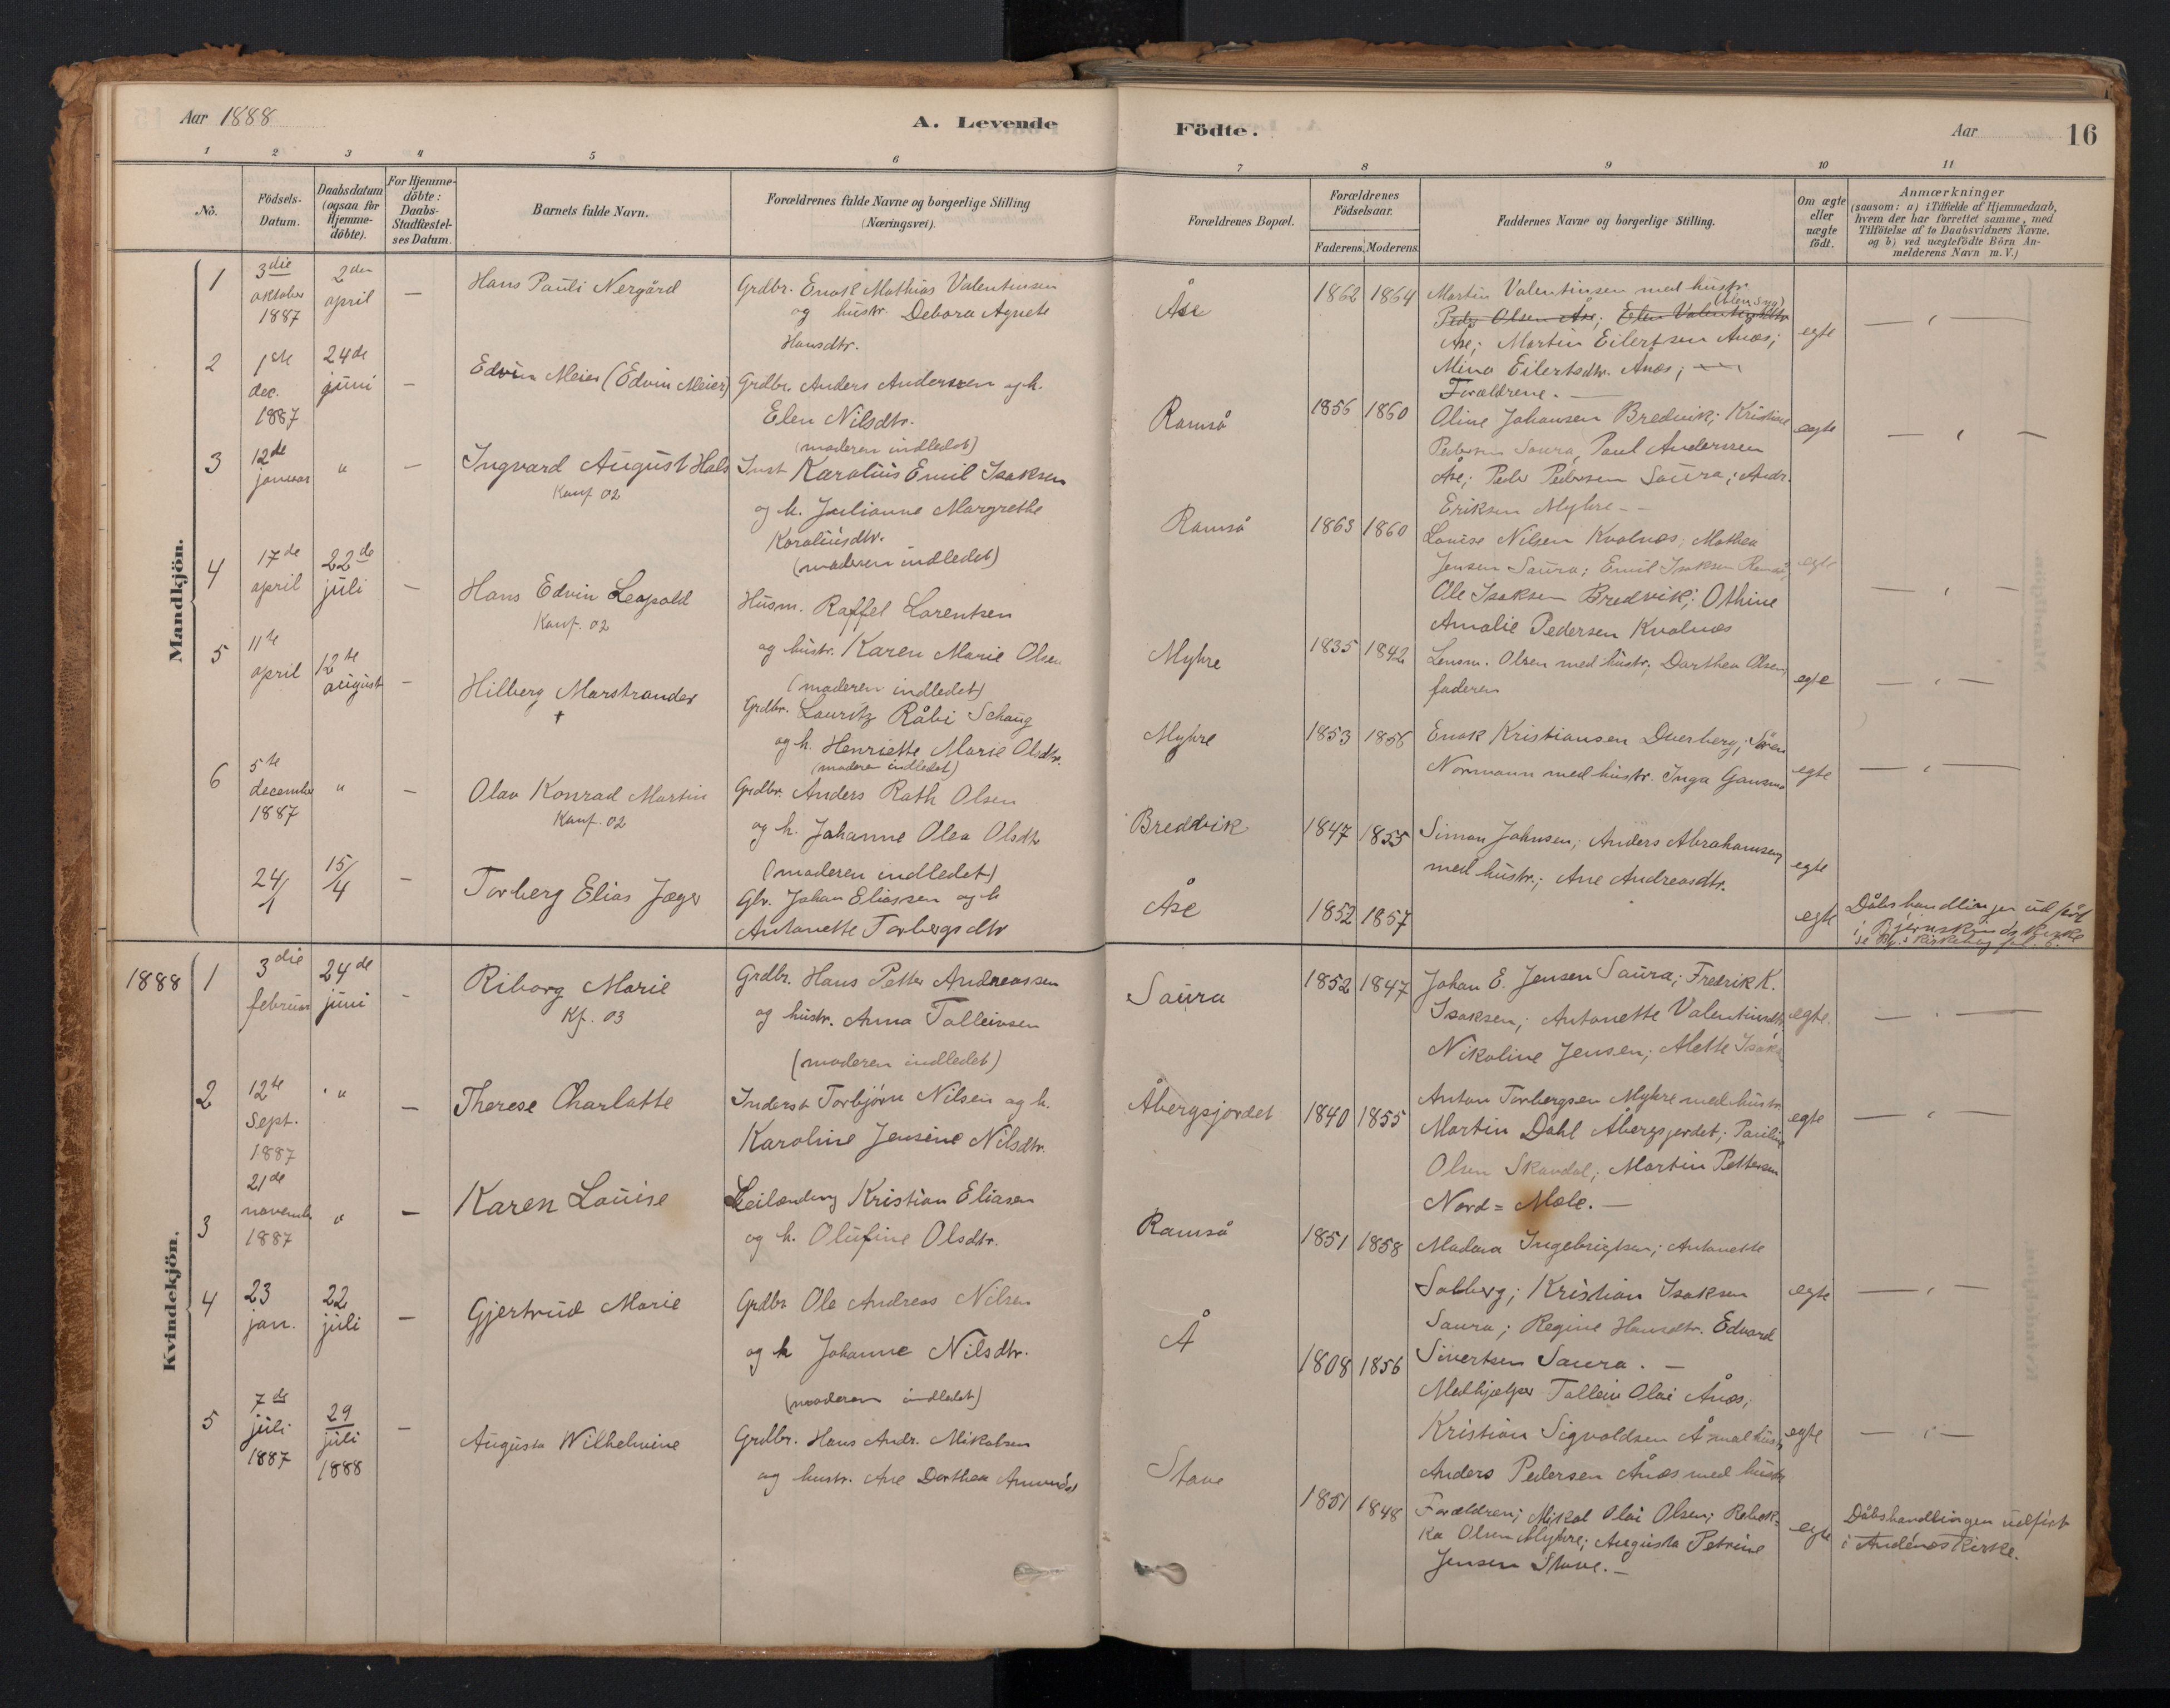 Aar 1888
A. Levende
Födte.
Aar
16
1 2 3 4 5 6 7 8 9 10 11
No.
Födsels-
Datum.
Daabsdatum
(ogsaa for
Hjemme-
döbte).
For Hjemme-
döbte:
Daabs-
Stadfæstel-
ses Datum.
Barnets fulde Navn.
Forældrenes fulde Navne og borgerlige Stilling
(Næringsvei).
Forældrenes Bopæl.
Forældrenes
Födselsaar.
Faderens. Moderens.
Faddernes Navne og borgerlige Stilling.
Om ægte
eller
uægte
födt.
Anmærkninger
(saasom: a) i Tilfælde af Hjemmedaab,
hvem der har forrettet samme, med
Tilföielse af to Daabsvidners Navne,
og b) ved uægtefödte Börn An-
melderens Navn m. V.)
Mandkjön.
1
3die
oktober
1887
2den
april
—
Hans Pauli Nergård
Grdbr. Enok Mathias Valentinsen
og hustr. Debora Agnete
Hansdtr.
Åse
1862 1864
Martin Valentinsen med hustr.
Peder Olsen Åse; Elen
Åse; Martin Eilertsen Ånæs;
Mina Eilertsdtr. Ånæs;
Forældrene. —
egte
— " —
2
1ste
dec.
1887
24de
juni
—
Edvin Meier (Edvin Meier)
Grdbr. Anders Anderssen og h.
Elen Nilsdtr.
(moderen indledet)
Ramså
1856 1860
Oline Johansen Bredvik; Kristine
Pedersen Saura, Paul Anderssen
Åse; Peder Pedersen Saura; Andr.
Eriksen Myhre - -
egte
— " —
3
12de
januar
"
—
Ingvard August Hals
Konf 02
Inst Karolius Emil Isaksen
og h. Julianne Margrethe
Karoliusdtr.
(moderen indledet)
Ramså
1863 1860
Louise Nilsen Kvalnæs; Mathea
Jensen Saura; Emil Isaksen Ramså;
Ole Isaksen Bredvik; Othine
Amalie Pedersen Kvalnæs
egte
— " —
4
17de
april
22de
juli
—
Hans Edvin Leopold
Konf. 02
Husm. Raffel Lorentsen
og hustr. Karen Marie Olsen
(moderen indledet)
Myhre
1835 1842
Lensm. Olsen med hustr; Dorthea Olsen,
faderen
egte
— " —
5
11te
april
12te
august
—
Hilberg Marstrander
†
Grdbr. Lauritz Råbi Schaug
og h. Henriette Marie Olsdtr.
(moderen indledet)
Myhre
1853 1856
Enok Kristiansen Dverberg; Sören
Normann med hustr. Inga
egte
— " —
6
5te
december
1887
"
—
Olav Konrad Martin
Konf. 02
Grdbr. Anders Rath Olsen
og h. Johanne Olea Olsdtr
(moderen indledet)
Breddvik
1847 1855
Simon Johnsen; Anders Abrahamsen
med hustr.; Ane Andreasdtr.
egte
24/1
15/4
—
Torberg Elias Jæger
Gbr. Johan Eliassen og h
Antonette Torbergsdtr
Åse
1852 1857
egte
Dåbshandlingen udført
i Bjørnskinds kirke
1888
Kvindekjön.
1
3die
februar
24de
juni
—
Riborg Marie
Kf. 03
Grdbr. Hans Petter Andreassen
og hustr. Anna Tolleivsen
(moderen indledet)
Saura
1852 1847
Johan E. Jensen Saura; Fredrik K.
Isaksen; Antonette Valentinsdtr.
Nikoline Jensen; Alette Isaks
egte.
— " —
2
12te
Sept.
1887
"
—
Therese Charlotte
Inderst Torbjörn Nilsen og h.
Karoline Jensine Nilsdtr.
Åbergsjordet
1840 1855
Anton Torbergsen Myhre med hustr.
Martin Dahl Åbergsjordet; Pauline
Olsen Skavdal; Martin Pettersen
Nord = Mele. —
egte
— " —
3
21de
novemb.
1887
"
—
Karen Louise
Leilænding Kristian Eliasen
og h. Olufine Olsdtr.
Ramså
1851 1858
Madara Ingebrigtsen; Antonette
Solberg; Kristian Isaksen
Saura; Regine Hansdtr. Edvard
Sivertsen Saura. —
egte
— " —
4
23
jan.
22
juli
—
Gjertrud Marie
Grdbr Ole Andreas Nilsen
og h Johanne Nilsdtr.
(moderen indledet)
Å
1808 1856
Medhjelper Tolleiv Olai Ånæs;
Kristian Sigvaldsen Å med hustr
Anders Pedersen Ånæs med hustr
egte
— " —
5
7de
juli
1887
29
juli
1888
—
Augusta Wilhelmine
Grdbr. Hans Andr. Mikalsen
og hustr. Ane Dorthea Amundsd
Stave
1851 1848
Forældren; Mikal Olai Olsen; Rebek-
ka Olsen Myhre; Augusta Petrine
Jensen Stave. —
egte
Dåbshandlingen udført
i Andenæs kirke.